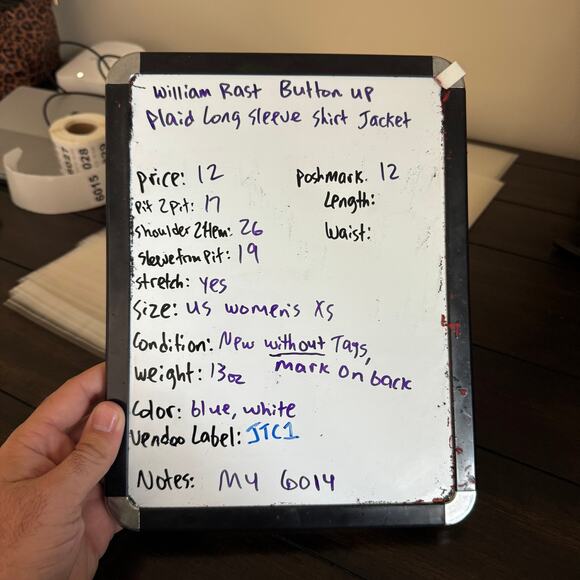 William Rast Button up
Plaid Long Sleeve Shirt Jacket
Price: 12
Poshmark: 12
Pit 2 Pit: 17
Length:
Shoulder 2 Hem: 26
Waist:
Sleeve from Pit: 19
Stretch: Yes
Size: US women's XS
Condition: New without Tags,
Mark on back
Weight: 13oz
Color: blue, white
Vendoo Label: JTC1
Notes: MY 6014
6015 028